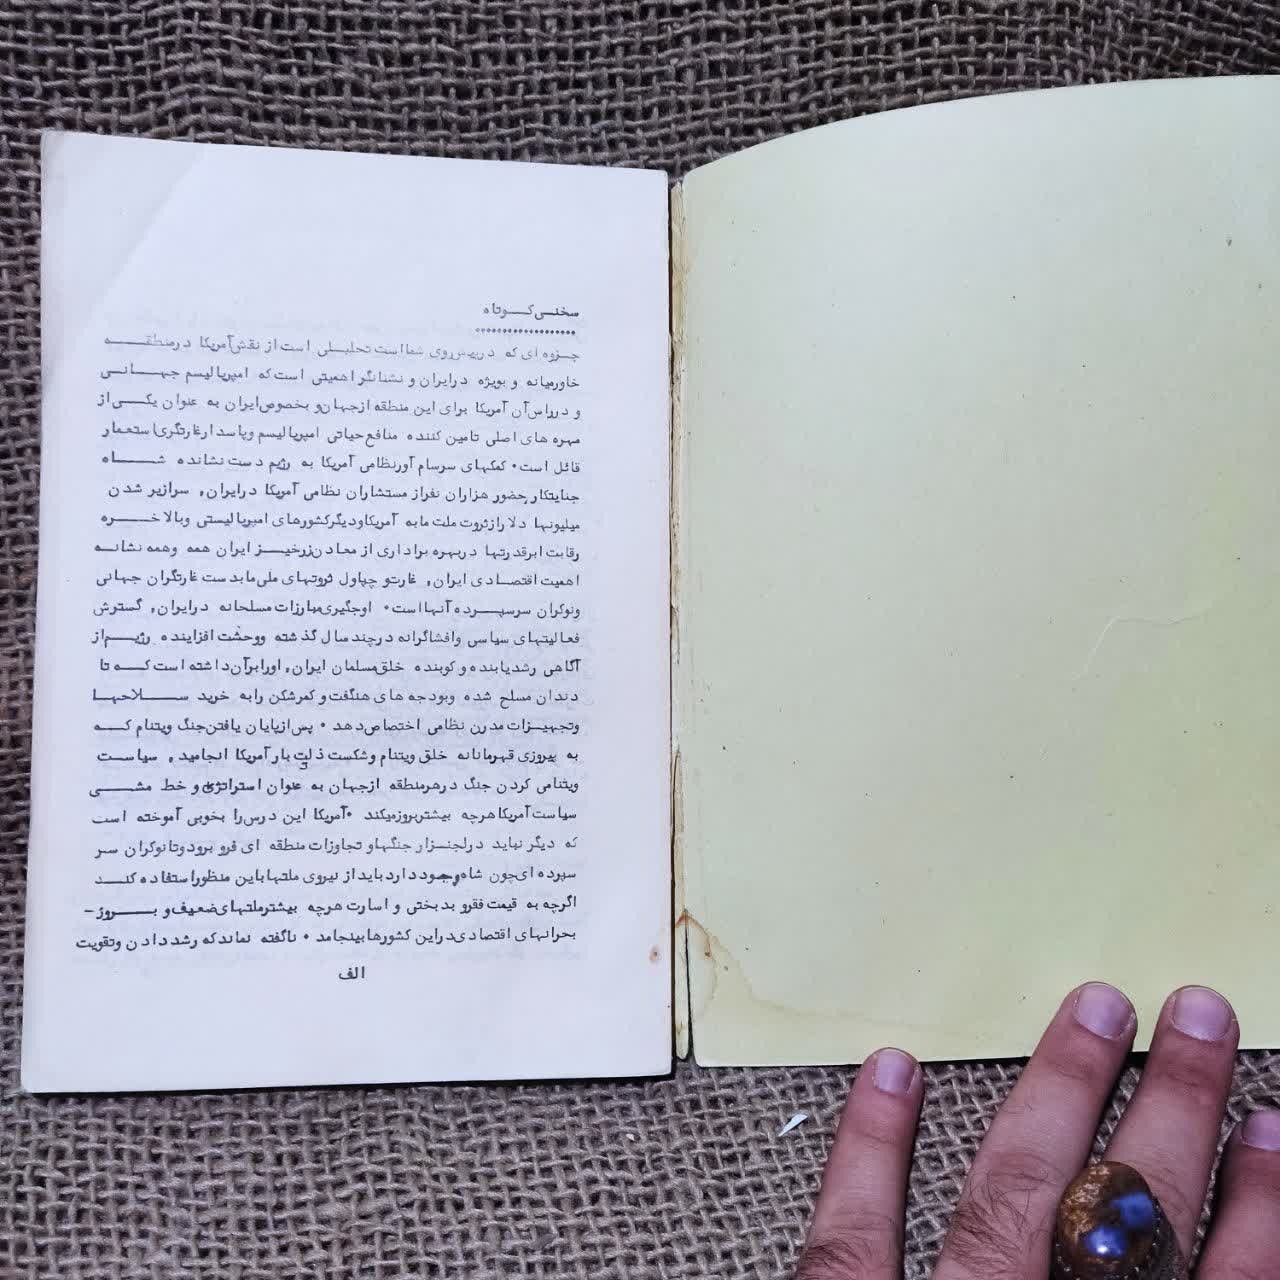 سخنی کوتاه
جزوه ای که در پیش روی شما است تحلیلی است از نقش آمریکا در منطقه
خاورمیانه و بویژه در ایران و نشانگر اهمیتی است که امپریالیسم جهانی
و در راس آن آمریکا برای این منطقه از جهان و بخصوص ایران به عنوان یکی از
مهره های اصلی تامین کننده منافع حیاتی امپریالیسم و پاسدار غارتگری استعمار
قائل است. کمکهای سرسام آور نظامی آمریکا به رژیم دست نشانده شاه
جنایتکار, حضور هزاران نفر از مستشاران نظامی آمریکا در ایران, سرازیر شدن
میلیونها دلار از ثروت ملت ما به آمریکا و دیگر کشورهای امپریالیستی و بالاخره
رقابت ابرقدرتها در بهره برداری از معادن زرخیز ایران همه و همه نشانه
اهمیت اقتصادی ایران, غارت و چپاول ثروتهای ملی ما بدست غارتگران جهانی
و نوکران سرسپرده آنها است. اوجگیری مبارزات مسلحانه در ایران, گسترش
فعالیتهای سیاسی و افشاگرانه در چند سال گذشته و وحشت افزاینده رژیم از
آگاهی رشد یابنده و کوبنده خلق مسلمان ایران, او را بر آن داشته است که تا
دندان مسلح شده و بودجه های هنگفت و کمرشکن را به خرید سلاحها
و تجهیزات مدرن نظامی اختصاص دهد. پس از پایان یافتن جنگ ویتنام که
به پیروزی قهرمانانه خلق ویتنام و شکست ذلت بار آمریکا انجامید, سیاست
ویتنامی کردن جنگ در هر منطقه از جهان به عنوان استراتژی و خط مشی
سیاست آمریکا هر چه بیشتر بروز میکند. آمریکا این درس را بخوبی آموخته است
که دیگر نباید در لجنزار جنگها و تجاوزات منطقه ای فرو برود و تا نوکران سر
سپرده ای چون شاه وجود دارد باید از نیروی ملتها باین منظور استفاده کند
اگر چه به قیمت فقر و بدبختی و اسارت هر چه بیشتر ملتهای ضعیف و بروز-
بحرانهای اقتصادی در این کشورها بینجامد. ناگفته نماند که رشد دادن و تقویت
الف